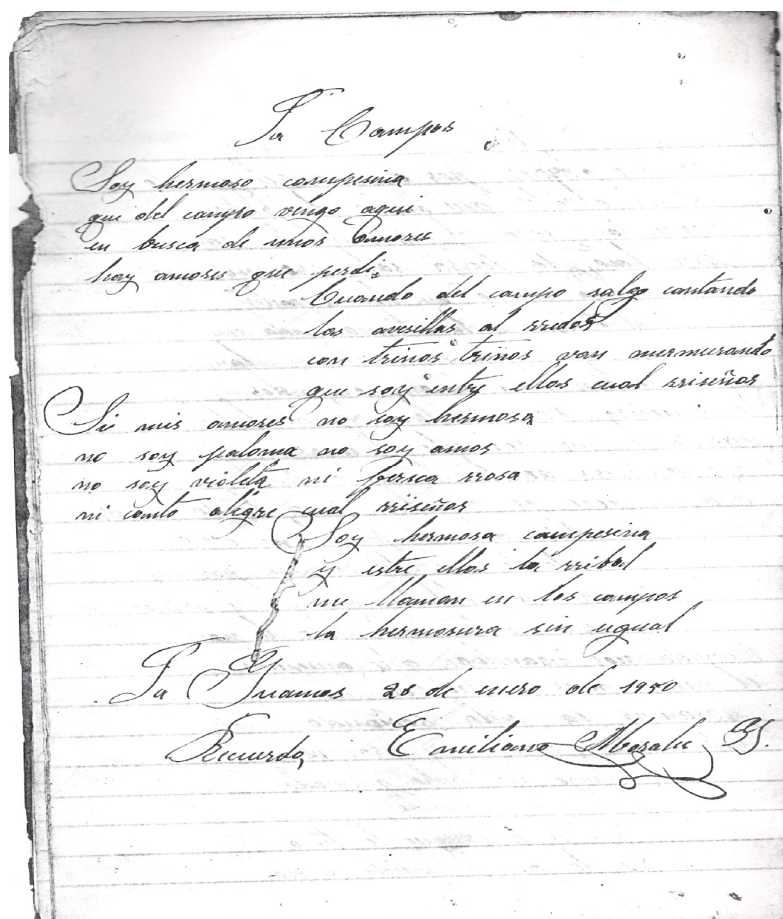 La Campos
Soy hermoso campesina
que del campo vengo aqui
en busca de unos amores
hay amores que perdi
Cuando del campo salgo cantando
las avesillas al rredos
con trinos trinos van murmurando
que soy entre ellos cual rriseños
Si mis amores no soy hermosa
no soy paloma no soy amos
no soy violeta ni fresca rrosa
ni canto aligre cual rriseños
Soy hermosa campesina
y estre ellos la rribal
me llaman en los campos
la hermosura sin ugual
La 28 de enero de 1950
Recuerdo Emiliano Morales